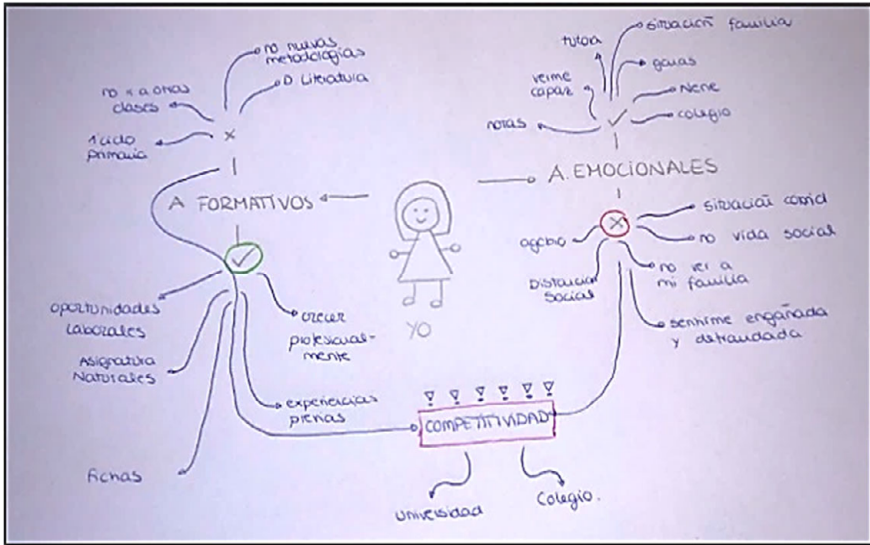 no nuevas
metodologías
D. Literatura
no ir a otras
clases
1º ciclo
primaria
x
A FORMATIVOS
✓
oportunidades
laborales
Asignatura
Naturales
fichas
crecer
profesional-
mente
experiencias
plenas
YO
situación familia
tutora
ganas
verme
capaz
Nene
colegio
notas
✓
A. EMOCIONALES
x
situación covid
no vida social
agobio
no ver a
mi familia
Distancia
social
sentirme engañada
y defraudada
COMPETITIVIDAD
Universidad
Colegio.